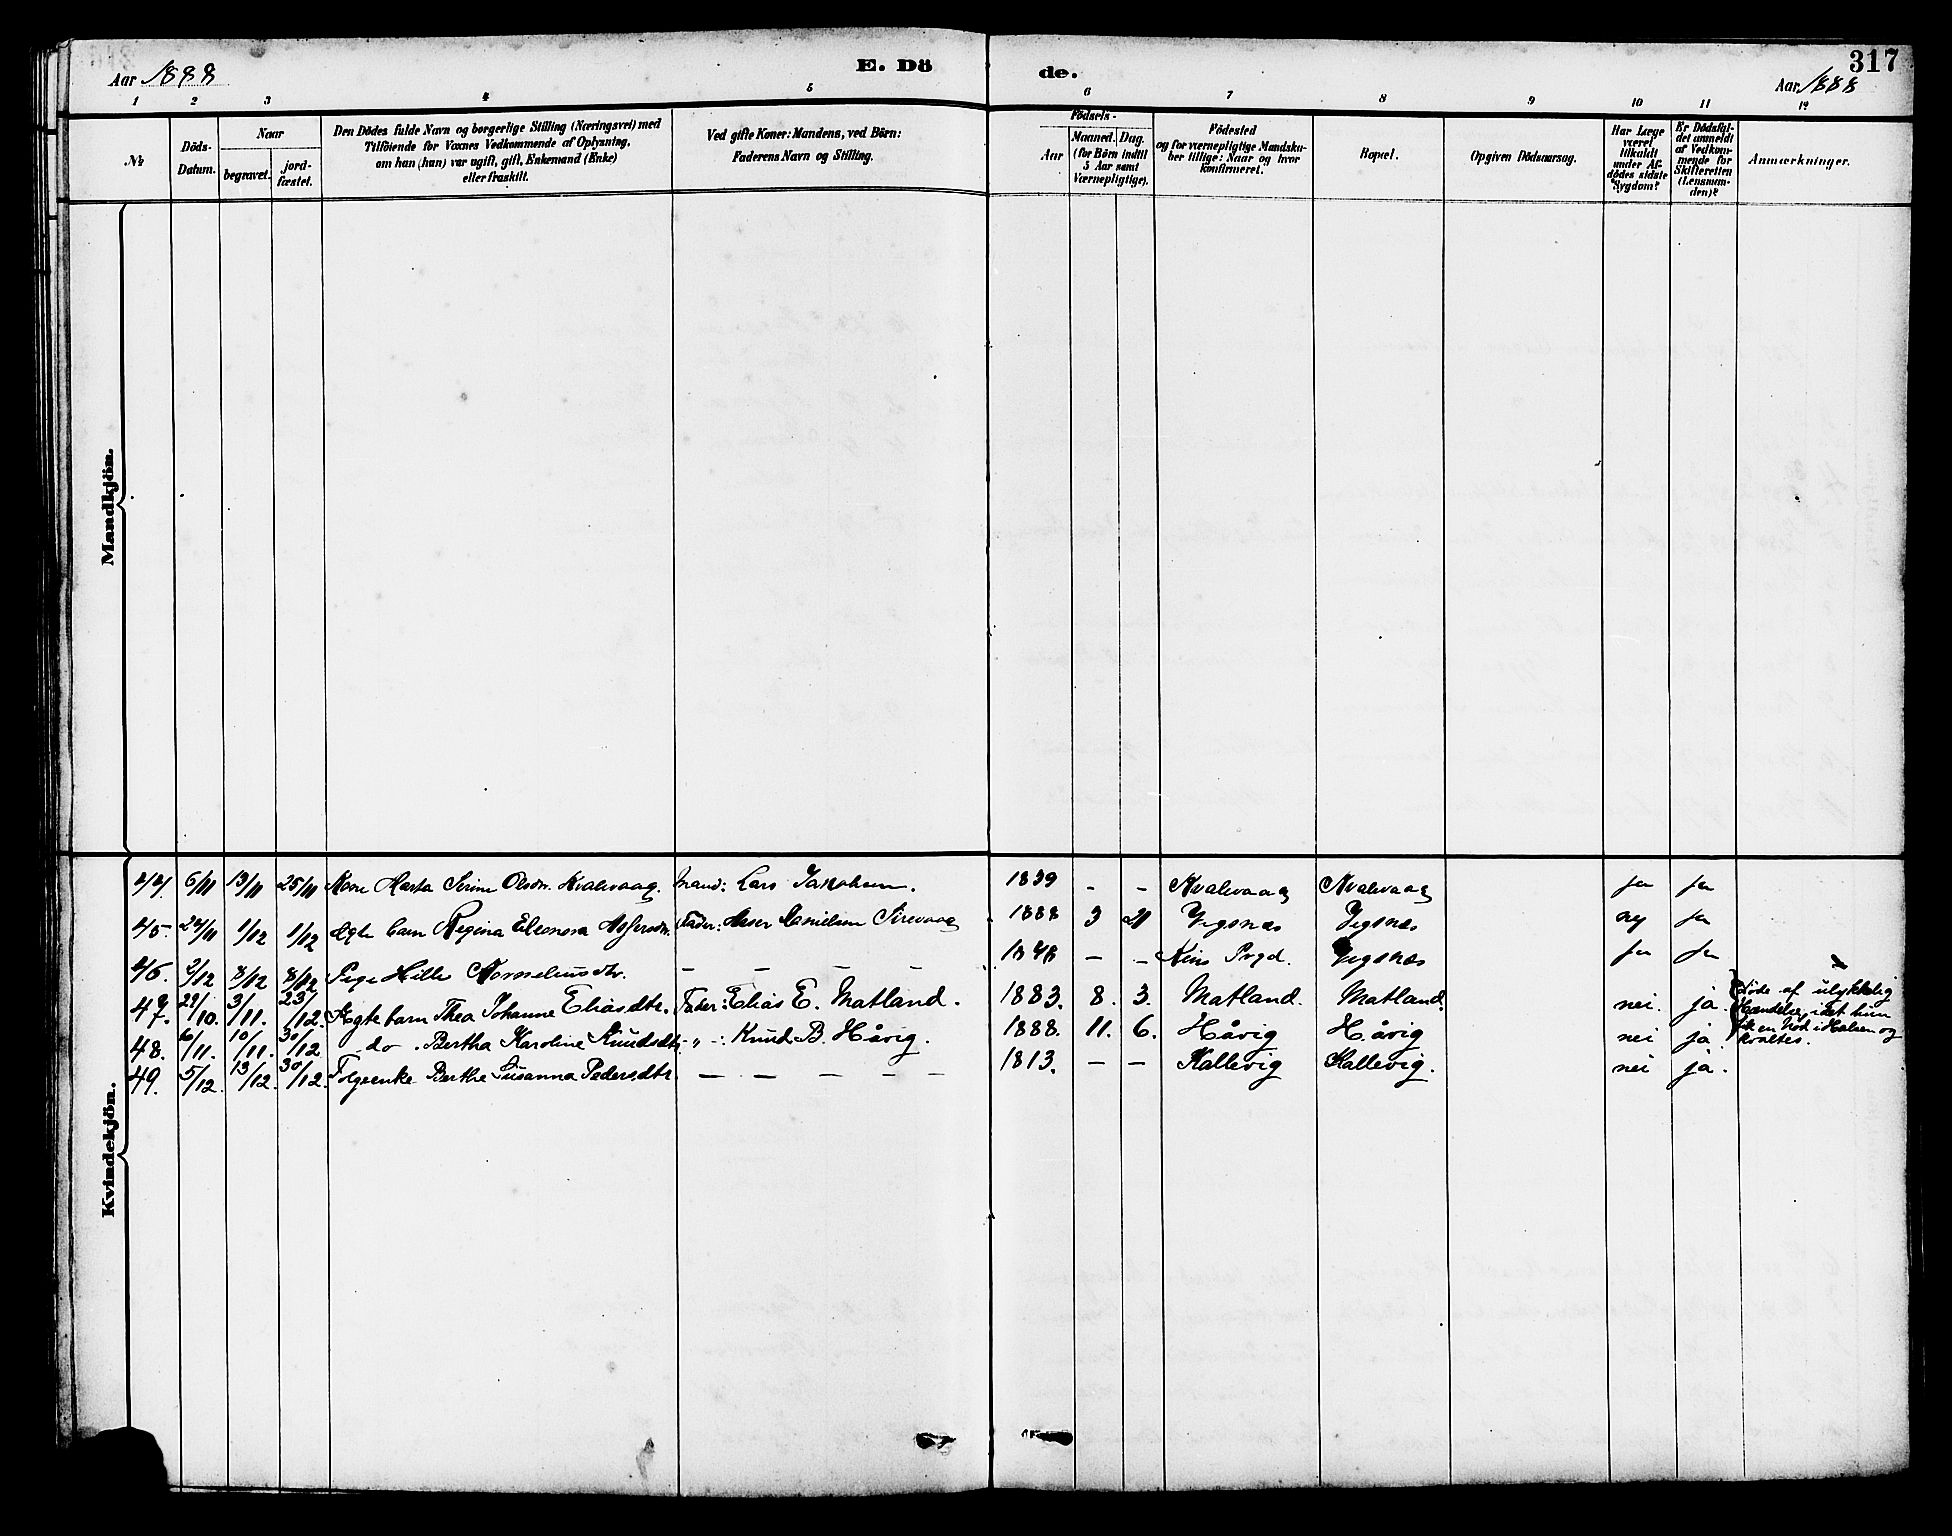 317
Aar 1888 E. Dö de. Aar 1888
1 2 3 4 5 6 7 8 9 10 11 12
№
Döds-Datum.
Naar
begravet. jord-fæstet.
Den Dödes fulde Navn og borgerlige Stilling (Næringsvei) med
Tilföiende for Voxnes Vedkommende af Oplysning,
om han (hun) var ugift, gift, Enkemand (Enke)
eller fraskilt.
Ved gifte Koner: Mandens, ved Börn:
Faderens Navn og Stilling.
Födsels-
Aar Maaned. Dag.
(for Börn indtil
5 Aar samt
Værnepligtige).
Födested
og for værnepligtige Mandska-
ber tillige: Naar og hvor
konfirmeret.
Bopæl.
Opgiven Dödsaarsag.
Har Læge
været
tilkaldt
under Af-
dödes sidste
Sygdom?
Er Dödsfal-
det anmeldt
af Vedkom-
mende for
Skifteretten
(Lensman-
den)?
Anmærkninger.
Mandkjön.
Kvindekjön.
44. 6/11 13/11 25/11 Kone Marta Serine Olsdtr. Kvalevaag. Mand: Lars Jakobsen. 1839 - - Kvalevaag Kvalevaag ja ja
45. 24/11 1/12 1/12 Ægte barn Regina Eleonora Assersdtr. Fader: Asser Danielsen Sirevaag 1888 3 21 Vigsnæs Vigsnæs ney ja
46. 2/12 8/12 8/12 Pige Hille Kornelius dtr. — — — — 1848 - - Kins Prgd. Vigsnæs ja ja
47. 29/10. 3/11. 23/12. Ægte barn Thea Johanne Eliasdtr. Fader: Elias E. Matland. 1883. 8. 3. Matland. Matland. nei. ja. Døde af ulykkelig
Hændelse, idet hun
fik en Nød i Halsen og
kvaltes.
48. 6/11. 10/11. 30/12 - do. Bertha Karoline Knudsdtr. - " -: Knud B. Håvig. 1888. 11. 6. Håvig Håvig nei ja.
49. 5/12. 13/12. 30/12. Folgeenke Berthe Susanna Pedersdtr. — — — — — 1813. — — Kallevig Kallevig. nei ja.